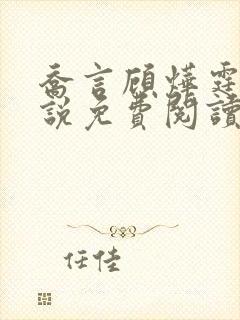 喬言顧燁霆
說免費閱讀
任佳